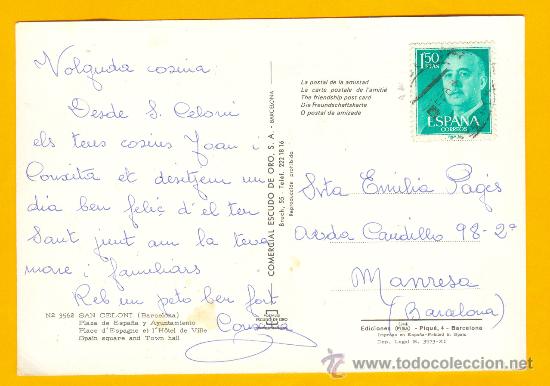 Volguda cosina
Desde S. Celoni
els teus cosins Joan i
Conxita et desitjem un
dia ben feliç d'el teu
Sant junt am la teva
mare i familiars
Reb un petó ben fort
Conxita
Nº 3562 SAN CELONI (Barcelona)
Plaza de España y Ayuntamiento
Place d'Espagne et l'Hôtel de Ville
Spain square and Town hall
COMERCIAL ESCUDO DE ORO, S. A. - BARCELONA
Bruch, 55 - Teléf. 222 18 16
Reproducción prohibida
ESCUDO DE ORO
La postal de la amistad
La carte postale de l'amitié
The friendship post card
Die Freundschaftskarte
O postal da amizade
1,50
PTAS
ESPAÑA
CORREOS
Srta Emilia Pagés
Avda Caudillo 98-2ª
Manresa
(Barcelona)
Ediciones - Piqué, 4 - Barcelona
Impreso en España-Printed in Spain
todocoleccion.net